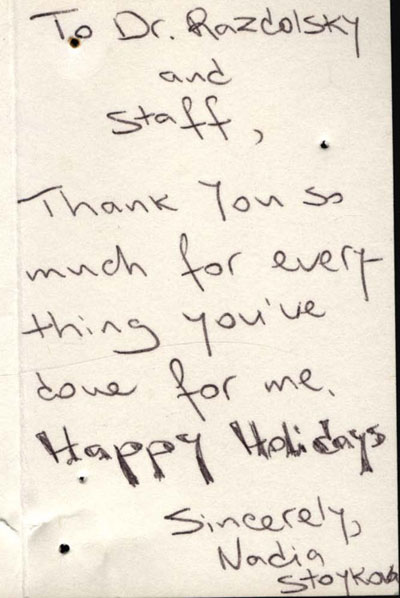 To Dr. Razdolsky
and
staff,
Thank You so
much for every
thing you've
done for me.
Happy Holidays
Sincerely,
Nadia
Stoykova